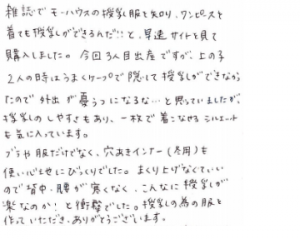 雑誌でモーハウスの授乳服を知り、ワンピースを
着ても授乳ができるんだ!!と、早速サイトを見て
購入しました。今回3人目出産ですが、上の子
2人の時はうまくケープで隠して授乳ができなかっ
たので外出が憂うつになるな…と思っていましたが、
授乳のしやすさもあり、一枚で着こなせるシルエット
も気に入っています。
ブラや服だけでなく、穴あきインナー(冬用)も
使い心地にびっくりでした。まくり上げなくていい
ので背中・腰が寒くなく、こんなに授乳が
楽なのか!と衝撃でした。授乳の為の服を
作っていただき、ありがとうございます。